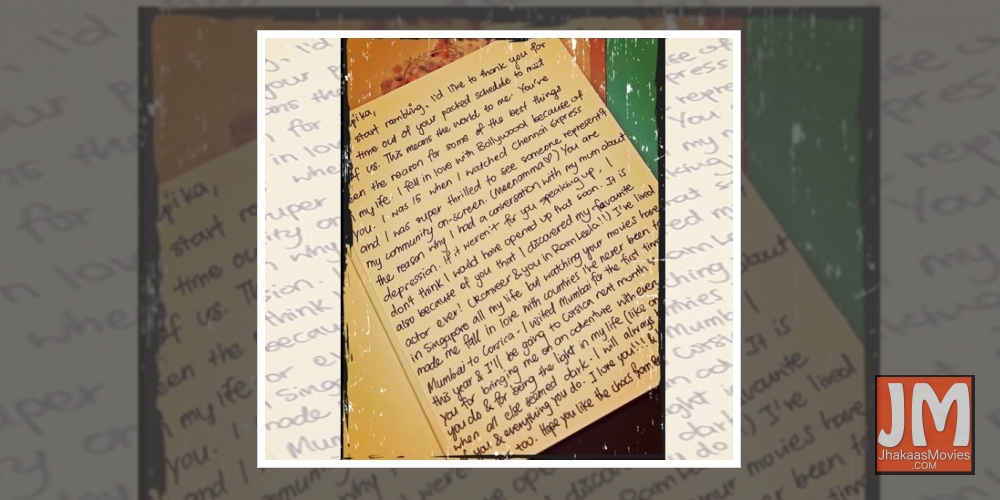 pika,
start rambling, I'd like to thank you for
time out of your packed schedule to meet
f us. This means the world to me. You've
een the reason for some of the best things
n my life. I fell in love with Bollywood because of
you. I was 15 when I watched Chennai Express
and I was super thrilled to see someone represent
my community on-screen. (Meenamma♡) You are
the reason why I had a conversation with my mum about
depression. If it weren't for you speaking up, I
don't think I would have opened up that soon. It is
also because of you that I discovered my favourite
actor ever! (Ranveer & you in Ram Leela!!) I've lived
in Singapore all my life but watching your movies have
made me fall in love with countries I've never been to
Mumbai to Corsica. I visited Mumbai for the first time
this year & I'll be going to Corsica next month.
you for bringing me on an adventure with ever
you do & for being the light in my life (like
when all else seemed dark. I will always
of you & everything you do. I love you!!! &
too. Hope you like the choc! from
JM
JhakaasMovies
.COM